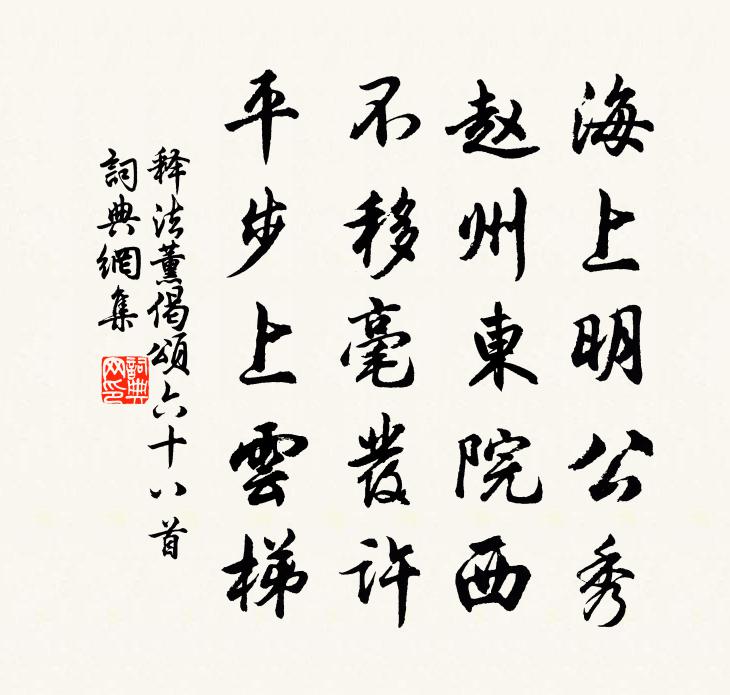 海上明公秀
赵州東院西
不移毫發许
平步上雲梯
释法薰偈頌六十八首
詞典網集
詞典
网印